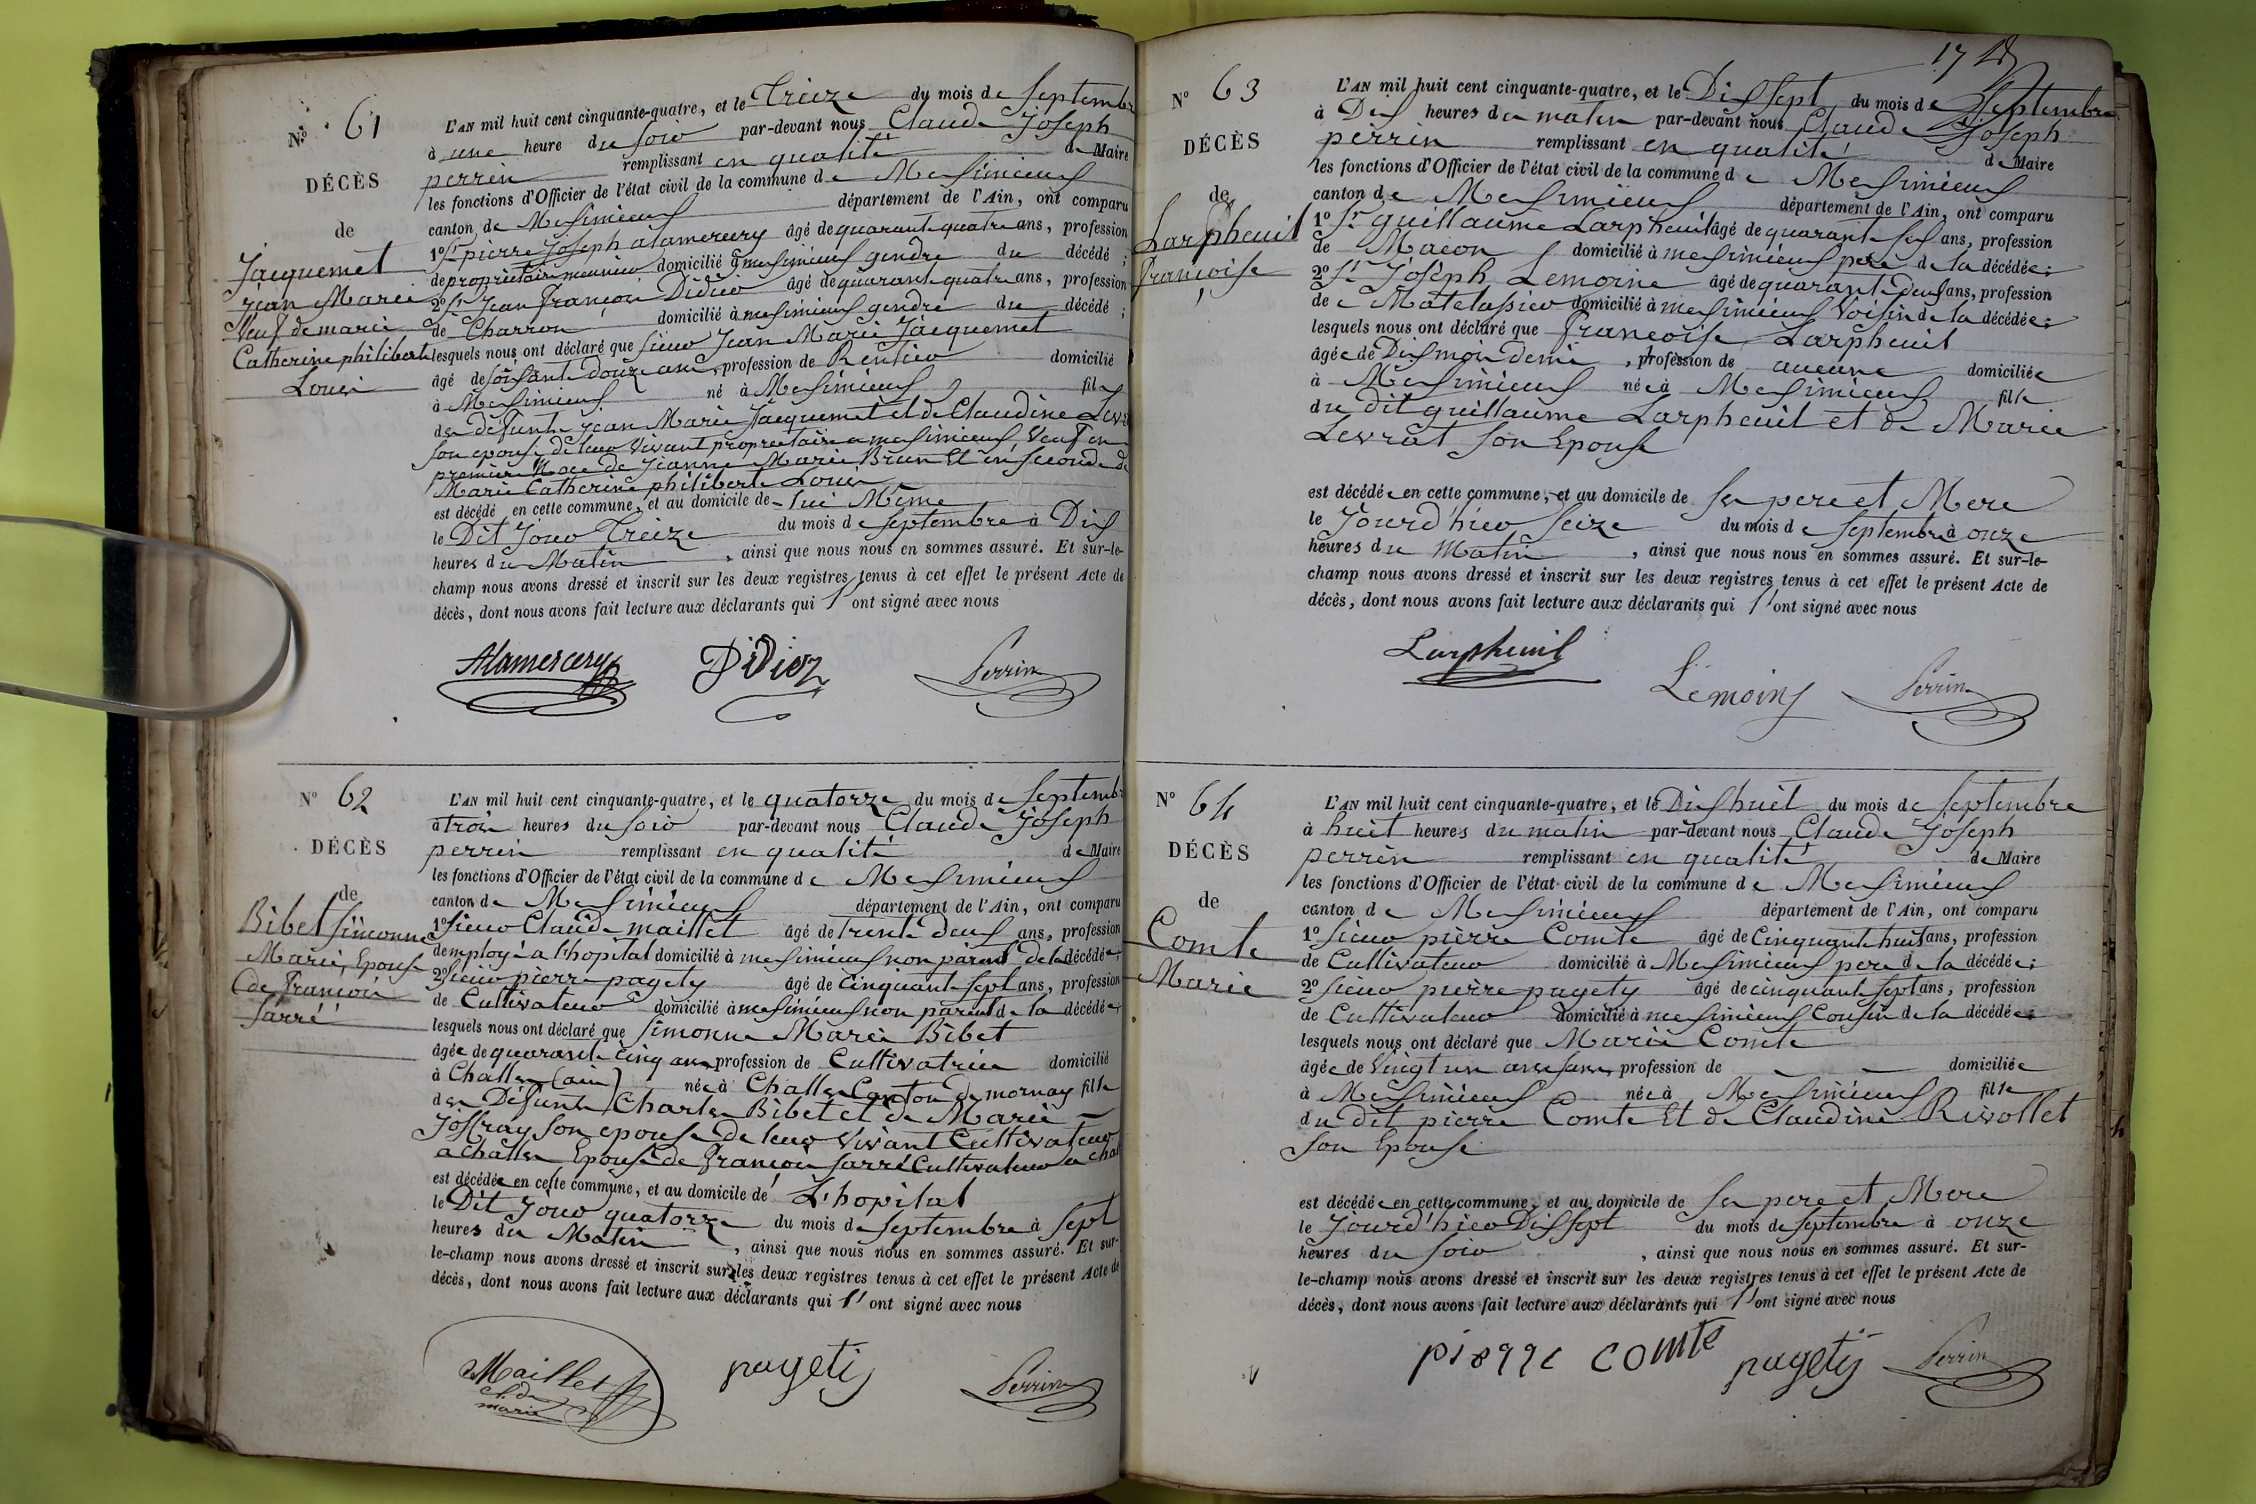 N° 61
DÉCÈS
de
Jacquemet
jean Marie
Veuf de marie
Catherine philiberte
Louis
L'AN mil huit cent cinquante-quatre, et le Treize du mois de Septembre
à une heure du soir par-devant nous Claude Joseph
perrin remplissant en qualité de Maire
les fonctions d'Officier de l'état civil de la commune de Meximieux
canton de Meximieux département de l'Ain, ont comparu
1° Sr pierre Joseph alamercery âgé de quarante quatre ans, profession
de proprietaire meunier domicilié à meximieux gendre du décédé;
2° Sr Jean François Didier âgé de quarante quatre ans, profession
de Charron domicilié à meximieux gendre du décédé;
lesquels nous ont déclaré que Sieur Jean Marie Jacquemet
âgé de soisante douze ans, profession de Rentier domicilié
à Meximieux né à Meximieux fils
des défunts jean Marie Jacquemet et de Claudine
son epouse de leur vivant proprietaire a meximieux Veuf en
premiere Noce de Jeanne Marie Brun Et en seconde de
Marie Catherine philiberte Louis
est décédé en cette commune, et au domicile de lui Même
le Dit Jour Treize du mois de septembre à Dix
heures du Matin, ainsi que nous nous en sommes assuré. Et sur-le-
champ nous avons dressé et inscrit sur les deux registres tenus à cet effet le présent Acte de
décès, dont nous avons fait lecture aux déclarants qui l'ont signé avec nous
Alamercery Didier Perrin
N° 62
DÉCÈS
de
Bibet Simonne
Marie, Epouse
de François
Sarré
L'AN mil huit cent cinquante-quatre, et le quatorze du mois de Septembre
à trois heures du soir par-devant nous Claude Joseph
perrin remplissant en qualité de Maire
les fonctions d'Officier de l'état civil de la commune de Meximieux
canton de Meximieux département de l'Ain, ont comparu
1° Sieur Claude maillet âgé de trente deux ans, profession
d'employé a l'hopital domicilié à meximieux non parent de la décédée;
2° Sieur pierre pagety âgé de Cinquante sept ans, profession
de Cultivateur domicilié à meximieux non parent de la décédée;
lesquels nous ont déclaré que Simonne Marie Bibet
âgée de quarante Cinq ans profession de Cultivatrice domicilié
à Challes (ain) née à Challes Canton de mornay fille
des Défunts Charles Bibet et de Marie
Joffray son epouse de leur vivant Cultivateur
a Challes Epouse de François Sarré Cultivateur a chal
est décédée en cette commune, et au domicile de L'hopital
le Dit Jour quatorze du mois de septembre à sept
heures du Matin, ainsi que nous nous en sommes assuré. Et sur-
le-champ nous avons dressé et inscrit sur les deux registres tenus à cet effet le présent Acte de
décès, dont nous avons fait lecture aux déclarants qui l'ont signé avec nous
Maillet pagety Perrin
Cl. de
marie
17
N° 63
DÉCÈS
de
Larpheuil
françoise
L'AN mil huit cent cinquante-quatre, et le Dix sept du mois de Septembre
à Dix heures du matin par-devant nous Claude Joseph
perrin remplissant en qualité de Maire
les fonctions d'Officier de l'état civil de la commune de Meximieux
canton de Meximieux département de l'Ain, ont comparu
1° Sr guillaume Larpheuil âgé de quarante six ans, profession
de Macon domicilié à meximieux pere de la décédée;
2° Sr Joseph Lemoine âgé de quarante deux ans, profession
de Matelassier domicilié à meximieux Voisin de la décédée;
lesquels nous ont déclaré que françoise Larpheuil
âgée de Dix mois demi, profession de aucune domiciliée
à Meximieux née à Meximieux fille
du dit guillaume Larpheuil et de Marie
Levrat son Epouse
est décédée en cette commune, et au domicile de ses pere et Mere
le Jourd'hier Seize du mois de septembre à onze
heures du Matin, ainsi que nous nous en sommes assuré. Et sur-le-
champ nous avons dressé et inscrit sur les deux registres tenus à cet effet le présent Acte de
décès, dont nous avons fait lecture aux déclarants qui l'ont signé avec nous
Larpheuil Lemoine Perrin
N° 64
DÉCÈS
de
Comte
Marie
L'AN mil huit cent cinquante-quatre, et le Dix huit du mois de Septembre
à huit heures du matin par-devant nous Claude Joseph
perrin remplissant en qualité de Maire
les fonctions d'Officier de l'état civil de la commune de Meximieux
canton de Meximieux département de l'Ain, ont comparu
1° Sieur pierre Comte âgé de Cinquante huit ans, profession
de Cultivateur domicilié à Meximieux pere de la décédée;
2° Sieur pierre pagety âgé de cinquante sept ans, profession
de Cultivateur domicilié à meximieux Cousin de la décédée;
lesquels nous ont déclaré que Marie Comte
âgée de Vingt un ans profession de domiciliée
à Meximieux née à Meximieux fille
du dit pierre Comte Et de Claudine Rivollet
Son Epouse
est décédée en cette commune, et au domicile de ses pere et Mere
le Jourd'hier Dix sept du mois de septembre à onze
heures du soir, ainsi que nous nous en sommes assuré. Et sur-
le-champ nous avons dressé et inscrit sur les deux registres tenus à cet effet le présent Acte de
décès, dont nous avons fait lecture aux déclarants qui l'ont signé avec nous
pierre comte pagety Perrin